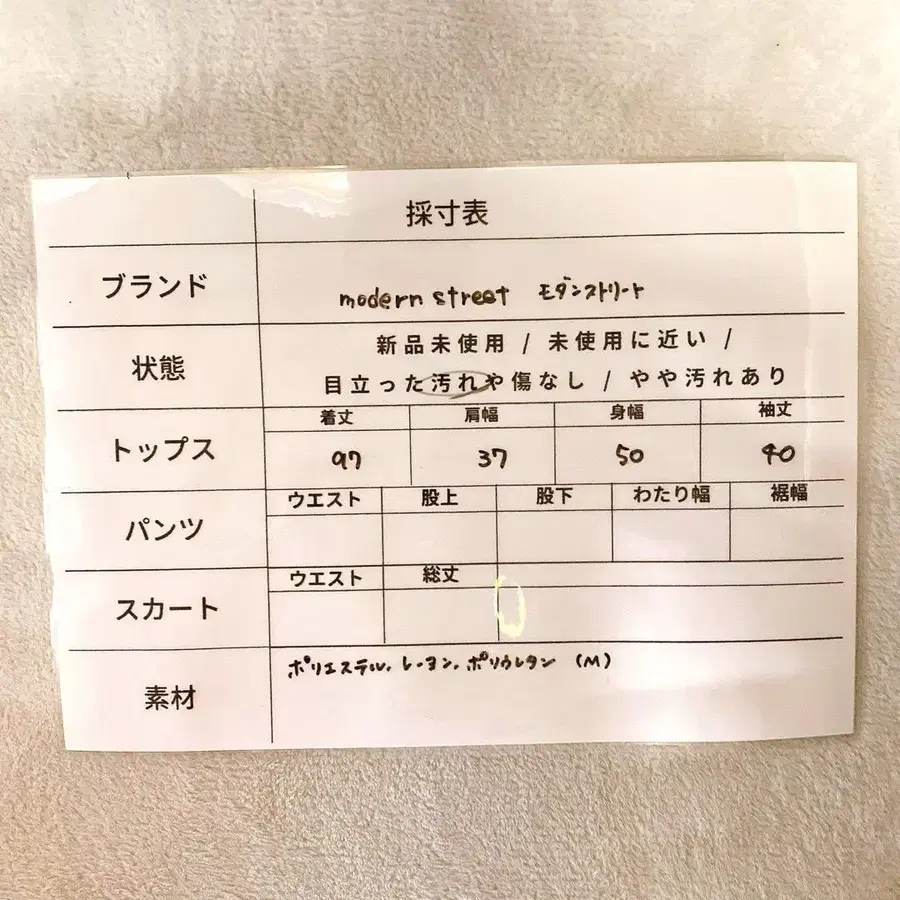 採寸表
ブランド modern street モダンストリート
状態 新品未使用 / 未使用に近い /
目立った汚れや傷なし / やや汚れあり
トップス 着丈 肩幅 身幅 袖丈
97 37 50 40
パンツ ウエスト 股上 股下 わたり幅 裾幅
スカート ウエスト 総丈
素材 ポリエステル、レーヨン、ポリウレタン (M)